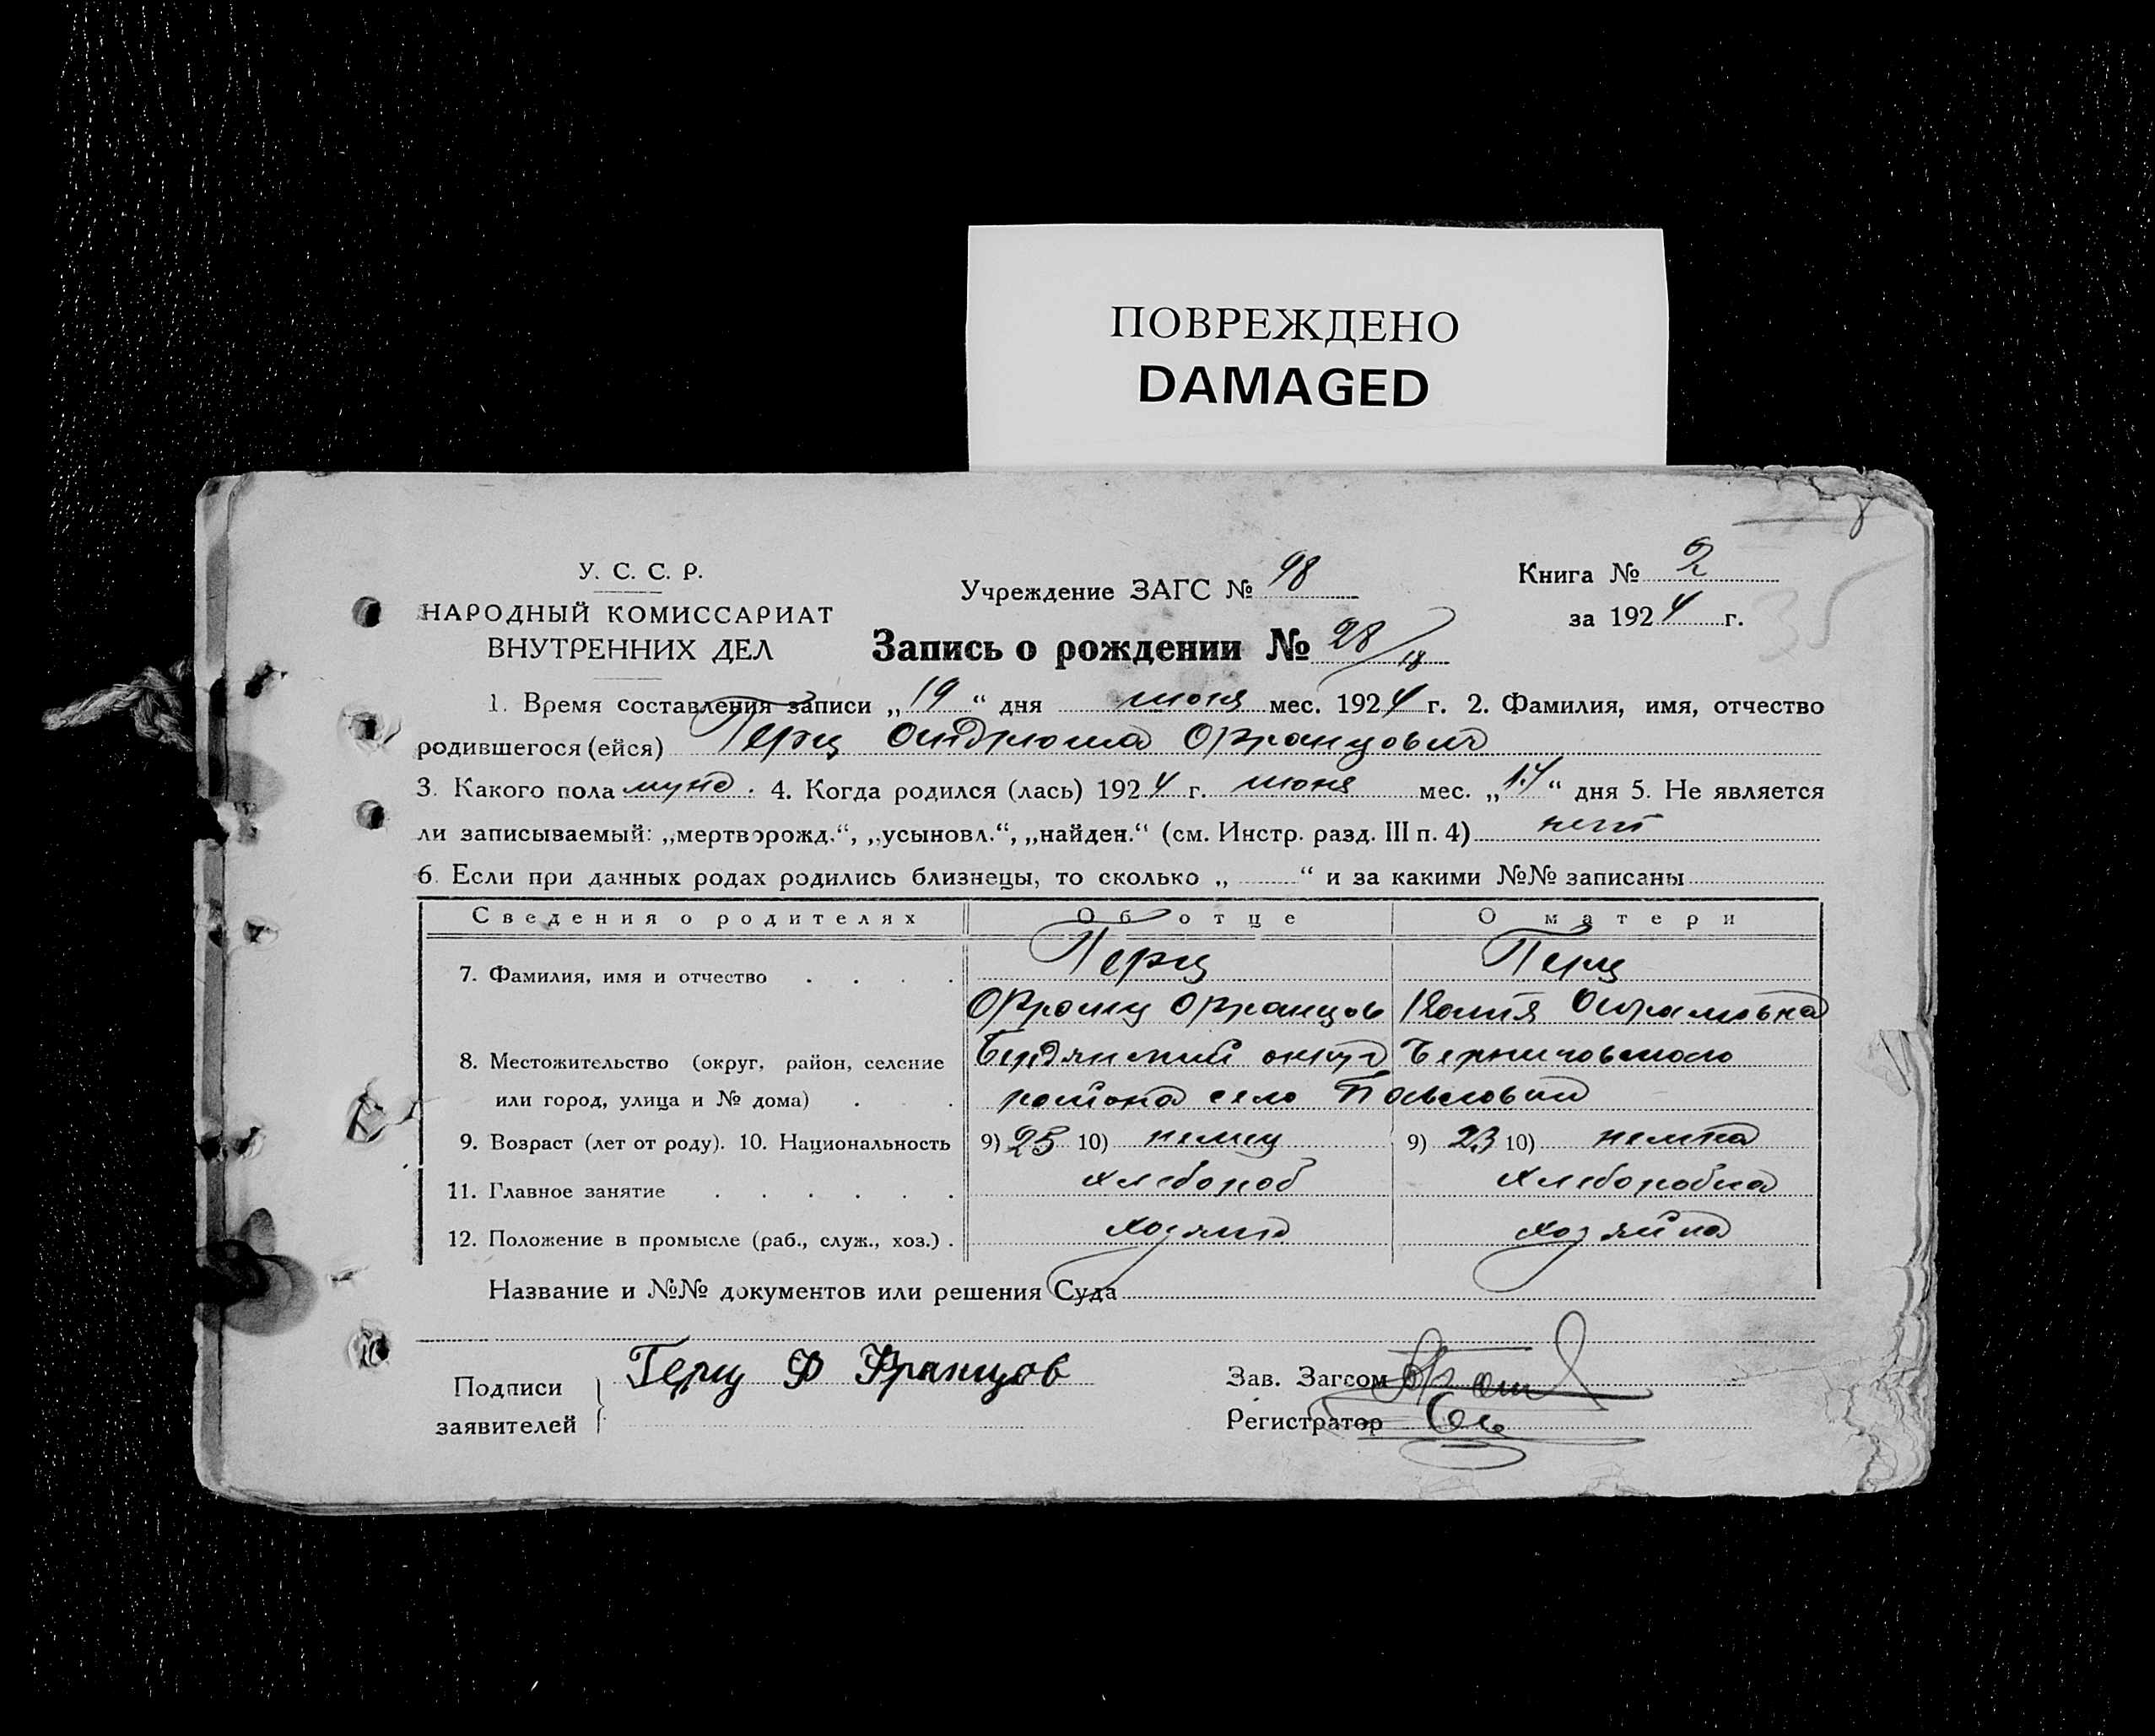 ПОВРЕЖДЕНО
DAMAGED
У. С. С. Р.
НАРОДНЫЙ КОМИССАРИАТ
ВНУТРЕННИХ ДЕЛ
Учреждение ЗАГС № 98
Книга № 2
за 1924 г.
35
Запись о рождении № 28/18
1. Время составления записи „19“ дня июня мес. 1924 г. 2. Фамилия, имя, отчество
родившегося (ейся) Герц Францович
3. Какого пола муж. 4. Когда родился (лась) 1924 г. июня мес. „14“ дня 5. Не является
ли записываемый: „мертворожд.“, „усыновл.“, „найден.“ (см. Инстр. разд. III п. 4) нет
6. Если при данных родах родились близнецы, то сколько „ “ и за какими №№ записаны
Сведения о родителях Об отце О матери
7. Фамилия, имя и отчество Герц Герц
Франц Францов
8. Местожительство (округ, район, селение Бердянский округ Черниговского
или город, улица и № дома) района село
9. Возраст (лет от роду). 10. Национальность 9) 25 10) немец 9) 23 10) немка
11. Главное занятие хлебороб хлеборобка
12. Положение в промысле (раб., служ., хоз.) хозяин хозяйка
Название и №№ документов или решения Суда
Подписи
заявителей
Герц Ф Францов
Зав. Загсом
Регистратор